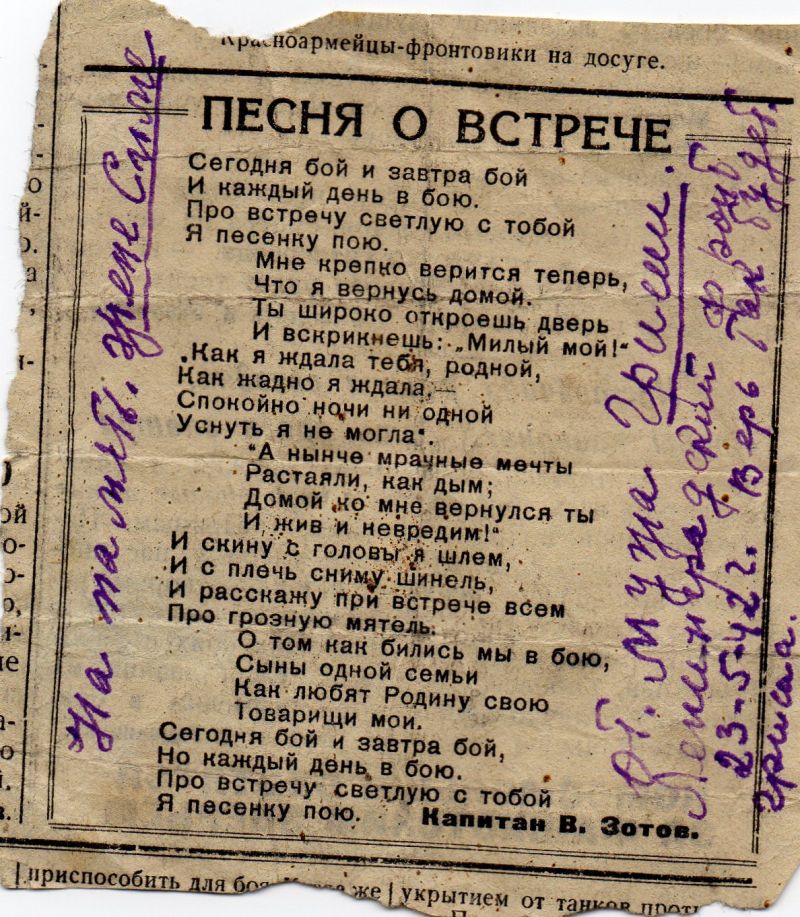 Красноармейцы-фронтовики на досуге.
ПЕСНЯ О ВСТРЕЧЕ
Сегодня бой и завтра бой
И каждый день в бою.
Про встречу светлую с тобой
Я песенку пою.
Мне крепко верится теперь,
Что я вернусь домой.
Ты широко откроешь дверь
И вскрикнешь: „Милый мой!"
„Как я ждала тебя, родной,
Как жадно я ждала,—
Спокойно ночи ни одной
Уснуть я не могла".
"А нынче мрачные мечты
Растаяли, как дым;
Домой ко мне вернулся ты
И жив и невредим!"
И скину с головы я шлем,
И с плечь сниму шинель,
И расскажу при встрече всем
Про грозную мятель.
О том как бились мы в бою,
Сыны одной семьи
Как любят Родину свою
Товарищи мои.
Сегодня бой и завтра бой,
Но каждый день в бою.
Про встречу светлую с тобой
Я песенку пою.
Капитан В. Зотов.
На память
От мужа Гриши.
Ленинградский фронт
23-5-42г. Верь так будет.
Гриша.
приспособить для боя
же
укрытием от танков